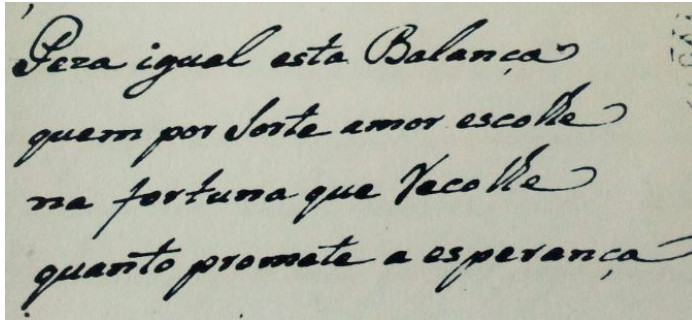 Peza igual esta Balança
quem por Sorte amor escolhe
na fortuna que Recolhe
quanto promete a esperança